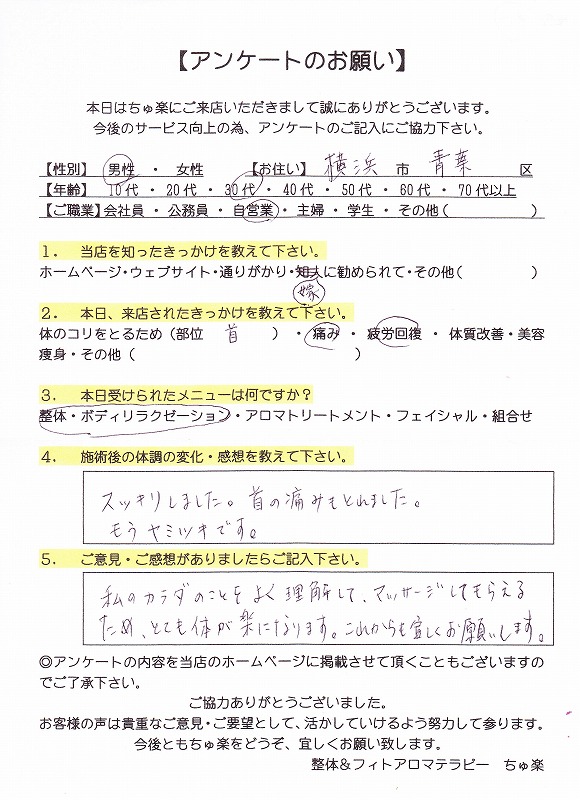 【アンケートのお願い】
本日はちゅ楽にご来店いただきまして誠にありがとうございます。
今後のサービス向上の為、アンケートのご記入にご協力下さい。
【性別】 男性 ・ 女性 【お住い】 横浜 市 青葉 区
【年齢】 10代 ・ 20代 ・ 30代 ・ 40代 ・ 50代 ・ 60代 ・ 70代以上
【ご職業】会社員 ・ 公務員 ・ 自営業 ・ 主婦 ・ 学生 ・ その他( )
1. 当店を知ったきっかけを教えて下さい。
ホームページ・ウェブサイト・通りがかり・知人に勧められて・その他( )
嫁
2. 本日、来店されたきっかけを教えて下さい。
体のコリをとるため(部位 首 ) ・ 痛み ・ 疲労回復 ・ 体質改善・美容
痩身・その他( )
3. 本日受けられたメニューは何ですか?
整体・ボディリラクゼーション・アロマトリートメント・フェイシャル・組合せ
4. 施術後の体調の変化・感想を教えて下さい。
スッキリしました。首の痛みもとれました。
もうヤミツキです。
5. ご意見・ご感想がありましたらご記入下さい。
私のカラダのことをよく理解して、マッサージしてもらえる
ため、とても体が楽になります。これからも宜しくお願いします。
◎アンケートの内容を当店のホームページに掲載させて頂くこともございますの
でご了承下さい。
ご協力ありがとうございました。
お客様の声は貴重なご意見・ご要望として、活かしていけるよう努力して参ります。
今後ともちゅ楽をどうぞ、宜しくお願い致します。
整体&フィトアロマテラピー ちゅ楽